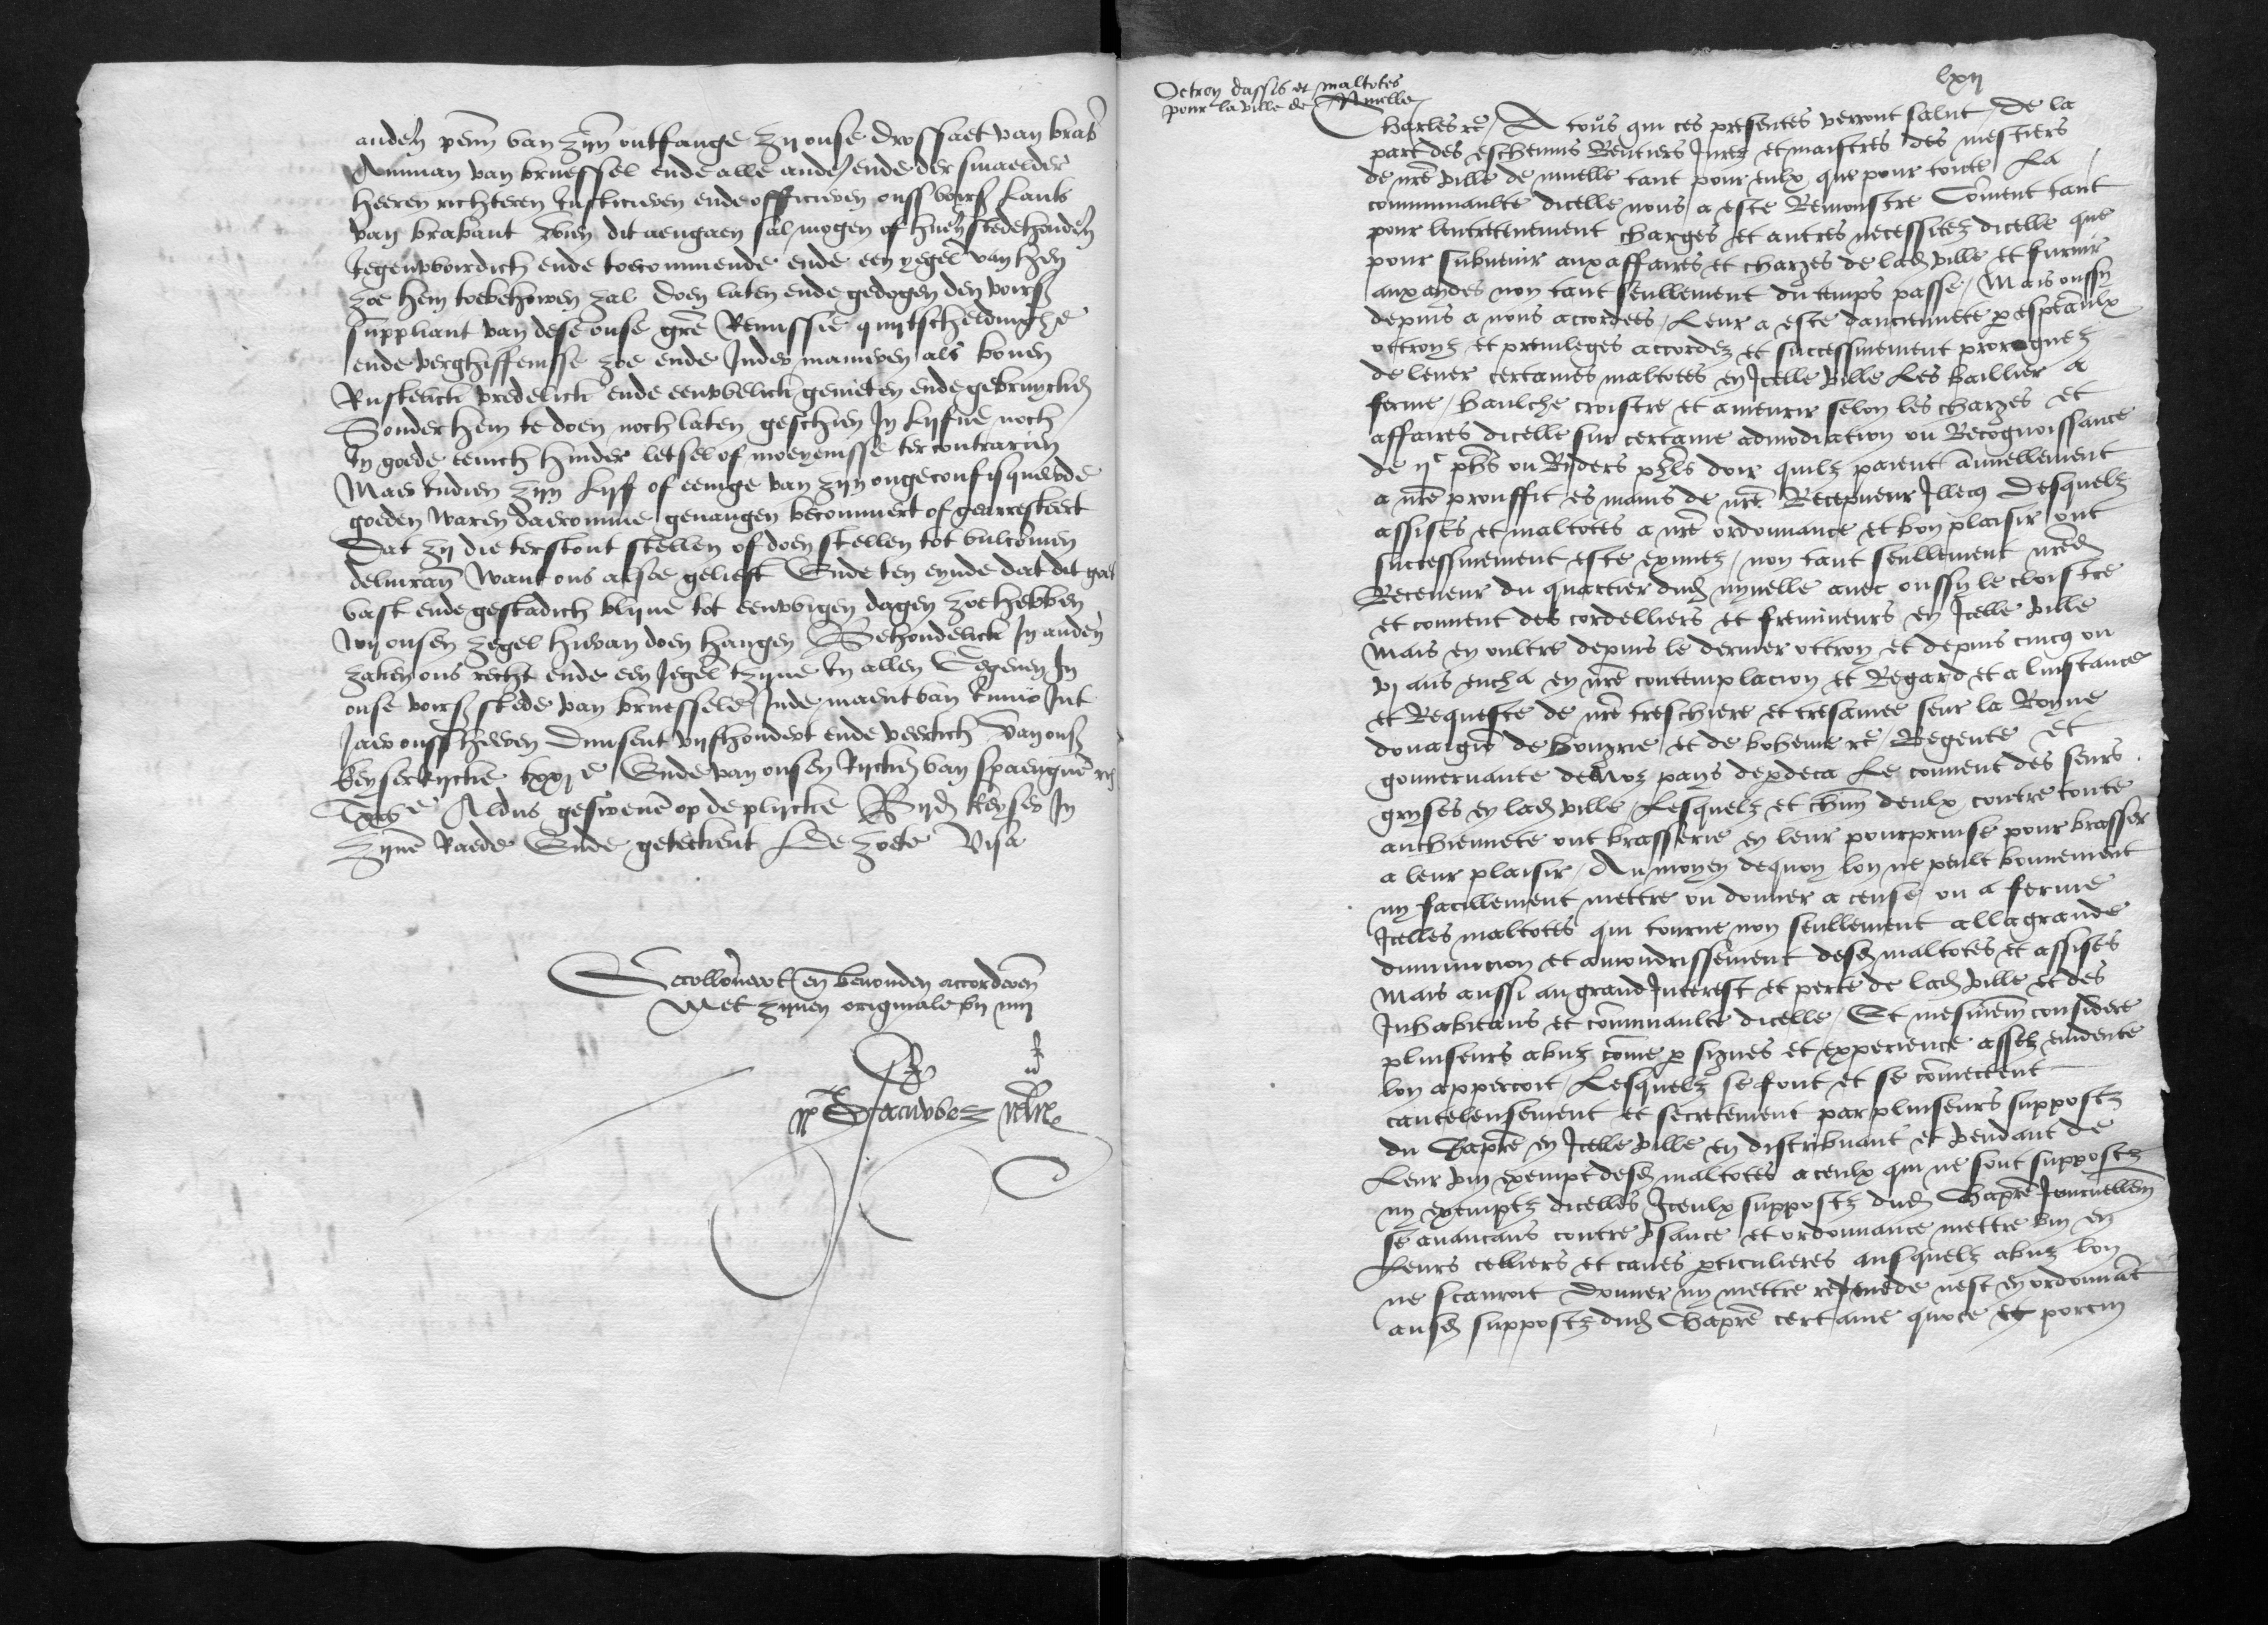 anderen penn van zyn ontfange zy onse drossaet van brab
Amman van bruessel ende alle andere ende der smaelder
heeren richteren Justicieren ende officieren onss voirs Lants
van brabant dien dit aengaen sal mogen of huer stedehouderen
Jegenwoirdich ende toecommende ende een yegel van hen
zoe hem toebehoiren zal doen laten ende gedogen den voirs
suppliant van dese onse gre Remissie quytscheldinghe
ende verghiffenisse zoe ende Inder manieren als boven
Rustelick vredelick ende eeuwelick genieten ende gebruycken
Sonder hem te doen noch laten geschien In lyfve noch
In goede eenich hinder letsel of moeyenisse ter contrarien
Maer Indien zyn lyf of eenige van zyn ongeconfisqueerde
goeden waren dairomme gevangen becommert of gearresteert
Dat zy die terstont stellen of doen stellen tot vulcomen
delivran Want ons alsoe gelieft Ende ten eynde dat dit
vast ende gestadich blyve tot eeuwigen dagen zoe hebben
wy onsen zegel hieran doen hangen Behoudelick In anderen
zaken ons recht ende een Jegel tzyne In allen Gegeven In
onse voirs stede van bruessele Inde maent van Junio Int
Jaer onss heeren Duusent vyfhondert ende veertich van onss
keyserrycke xxi e Ende van onsen Rycken van spaengne
xxv e Aldus gescreven op de plycke By den keyser In
zynen Raede Ende geteekent De Zoete Visa
Gecollationneert en bevonden accorderen
Met zynen originale by my
Octroy dassis et maltotes
pour la ville de Nivelle
lxij
Charles rc A tous qui ces presentes verront salut De la
part des eschevins Rentiers Jurez et maistres des mestiers
de nre ville de nivelle tant pour eulx que pour toute La
communaulte dicelle nous a este Remonstre Coment tant
pour lentretenement charges et autres necessitez dicelle que
pour subvenir aux affaires et charges de lad ville et furnir
aux aydes non tant seullement du temps passe Mais aussy
depuis a nous accordees Leur a este danciennete p especiaulx
ottroyz et previleges accordez et successivement prorogues
de lever certaines maltotes en Icelle ville Les baillier a
ferme haulche croistre et amenrir selon les charges et
affaires dicelle sur certaine admodiation ou Recognoissance
de ijc phs ou Ryders phls dor quilz paient annuellement
a nre prouffit es mains de nre Recepveur Illecq Desquelz
assises et maltotes a nre ordonnance et bon plaisir ont
successivement este exemptez non tant seullement nred
Receveur du quartier dud nyvelle avec aussy le cloistre
et couvent des cordelliers et fremineurs en Icelle ville
Mais en oultre depuis le dernier ottroy et depuis cincq ou
vj ans encha en nre contemplacion et Regard et a linstance
et Requeste de nre treschiere et tresamee seur la Royne
douaigiere de hongrie et de boheme rc Regente et
gouvernante de noz pays depdeca Le couvent des seurs
gryses en lad ville Lesquelz et chun deulx contre toute
anchiennete ont brasserie en leur pourprinse pour brasser
a leur plaisir Au moyen dequoy lon ne peult bonnement
ny facillement mettre ou donner a cense ou a ferme
Icelles maltotes qui tourne non seullement alla grande
diminucion et amoindrissement desd maltotes et assises
Mais aussi au grand Interest et perte de lad ville et des
Inhabitans et communaulte dicelle Et mesmem considere
pluiseurs abuz come p signes et experience assez evidente
lon appercoit Lesquelz se font et se comectent
cauteleusement et secretement par pluiseurs suppostz
du Chapre en Icelle ville en distribuant et vendant de
Leur vin exempt desd maltotes a ceulx qui ne sont suppostz
ny exemptz dicelles Iceulx suppostz dud Chapre Journellem
se avancans contre usance et ordonnance mettre vin en
Leurs celliers et caves pticulieres ausquelz abuz lon
ne scauroit donner ny mettre remede nest en ordonnat
ausd suppostz dud Chapre certaine quote et porcin